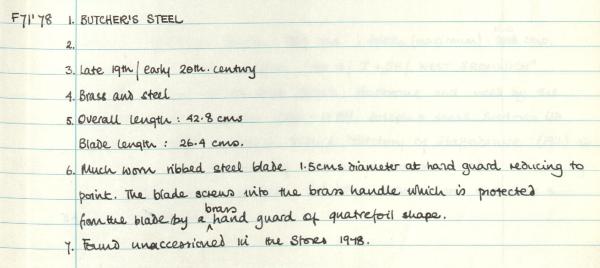 F71'78 1. BUTCHER'S STEEL
2.
3. Late 19th / early 20th. century
4. Brass and steel
5. Overall length : 42.8 cms
Blade length : 26.4 cms.
6. Much worn ribbed steel blade 1.5cms diameter at hand guard reducing to
point. The blade screws into the brass handle which is protected
from the blade by a brass hand guard of quatrefoil shape.
7. Found unaccessioned in the Stores 1978.